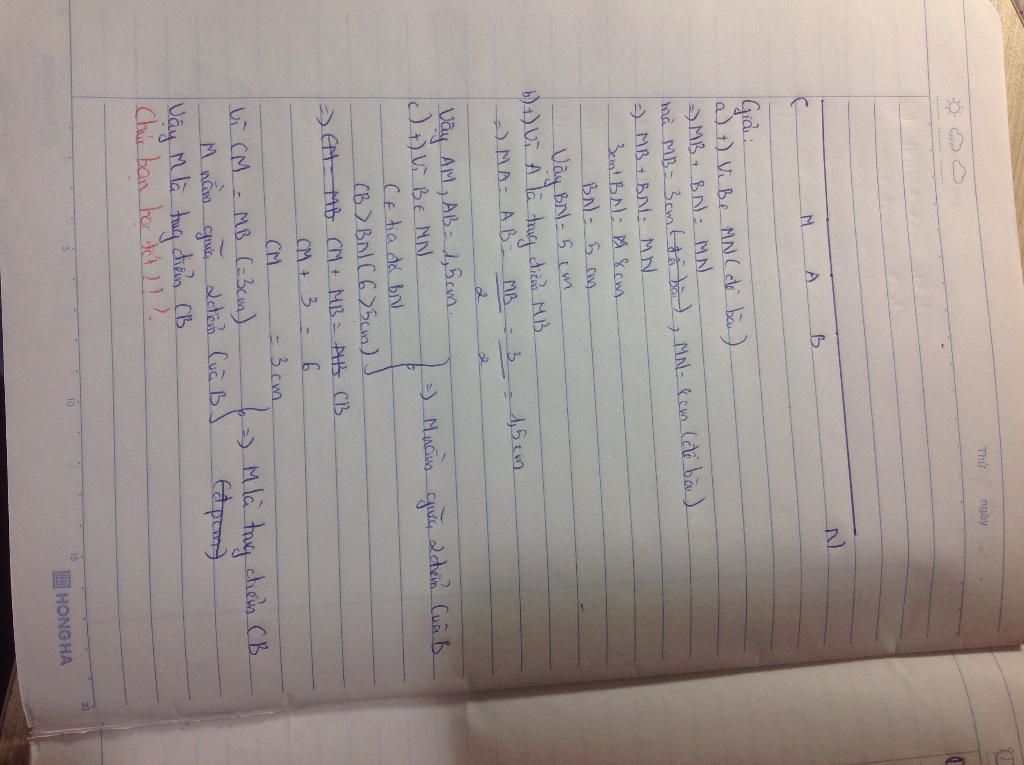 Thứ ngày
C M A B N
Giải:
a) +) Vì B ∈ MN (đề bài)
=> MB + BN = MN
mà MB = 3cm (đề bài), MN = 8cm (đề bài)
=> MB + BN = MN
3cm + BN = 8cm
BN = 5 cm
Vậy BN = 5 cm
b) +) Vì A là trung điểm MB
=> MA = AB = MB/2 = 3/2 = 1,5 cm
Vậy AM, AB = 1,5cm.
c) +) Vì B ∈ MN
C ∈ tia đối BN
CB > BN (6 > 5cm)
} => M nằm giữa 2 điểm C và B
=> CM = MB CM + MB = CB
CM + 3 = 6
CM = 3 cm
Vì CM = MB (= 3cm)
M nằm giữa 2 điểm C và B
} => M là trung điểm CB
(đpcm)
Vậy M là trung điểm CB
Chúc bạn học tốt!!!
5 10 15 20
HONG HA